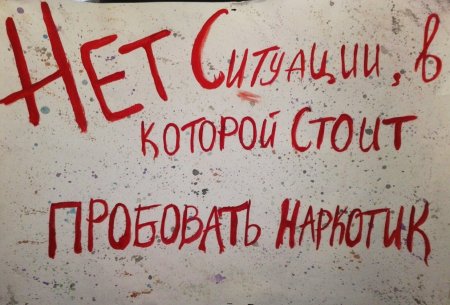 Нет Ситуации, в
которой Стоит
пробовать Наркотик